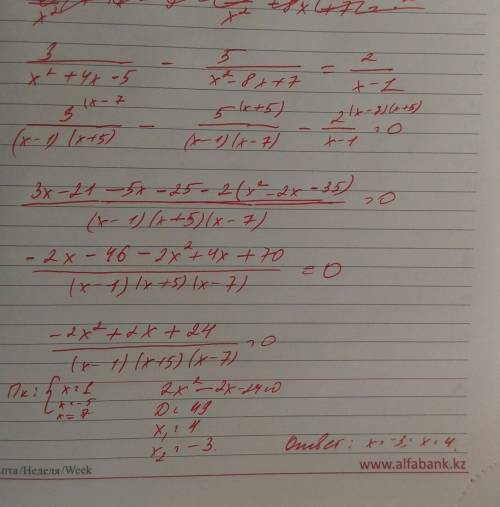 3/(x² + 4x - 5) - 5/(x² - 8x + 7) = 2/(x - 1)
3^(x - 7/((x-1)(x+5)) - 5^(x+5)/((x-1)(x-7)) - 2^(x-7)(x+5)/(x-1) = 0
(3x - 21 - 5x - 25 - 2(x² - 2x - 35))/((x-1)(x+5)(x-7)) = 0
(-2x - 46 - 2x² + 4x + 70)/((x-1)(x+5)(x-7)) = 0
(-2x² + 2x + 24)/((x-1)(x+5)(x-7)) = 0
Пк: { x = 1 2x² - 2x - 24 = 0
x = -5 D = 49
x = 7 x₁ = 4
x₂ = -3. Ответ: x = -3; x = 4.
пта/Неделя/Week www.alfabank.kz